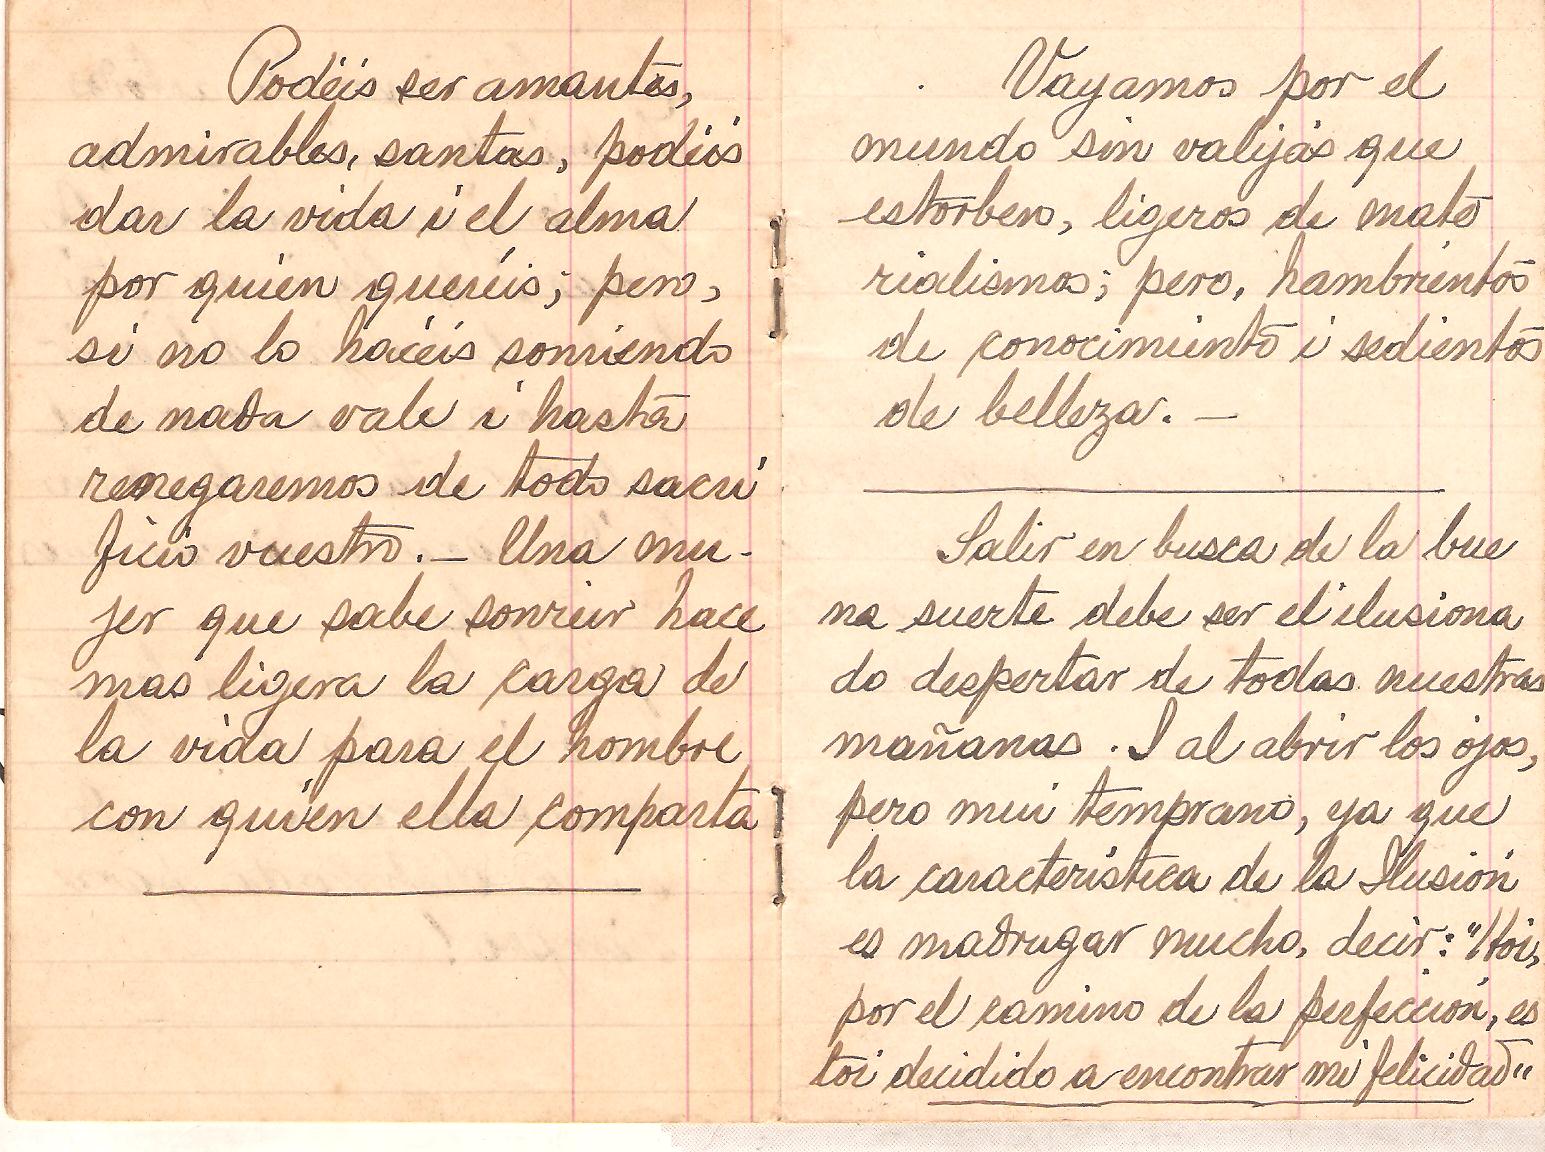 Podéis ser amantes,
admirables, santas, podéis
dar la vida i el alma
por quien queréis; pero,
si no lo hacéis sonriendo
de nada vale i hasta
renegaremos de todo sacri
ficio vuestro. — Una mu-
jer que sabe sonreir hace
mas ligera la carga de
la vida para el hombre
con quien ella comparta
Vayamos por el
mundo sin valijas que
estorben, ligeros de mate
rialismos; pero, hambrientos
de conocimiento i sedientos
de belleza. —
Salir en busca de la bue
na suerte debe ser el ilusiona
do despertar de todas nuestras
mañanas. I al abrir los ojos,
pero mui temprano, ya que
la característica de la Ilusión
es madrugar mucho, decir: "Hoi,
por el camino de la perfección, es
toi decidido a encontrar mi felicidad"